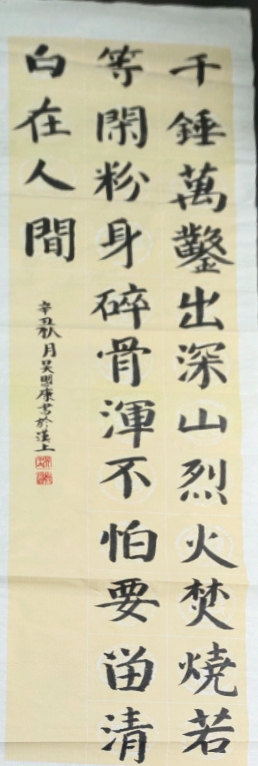 千錘萬鑿出深山烈火焚燒若
等閑粉身碎骨渾不怕要留清
白在人間
辛丑秋月吴盟康书於漢上